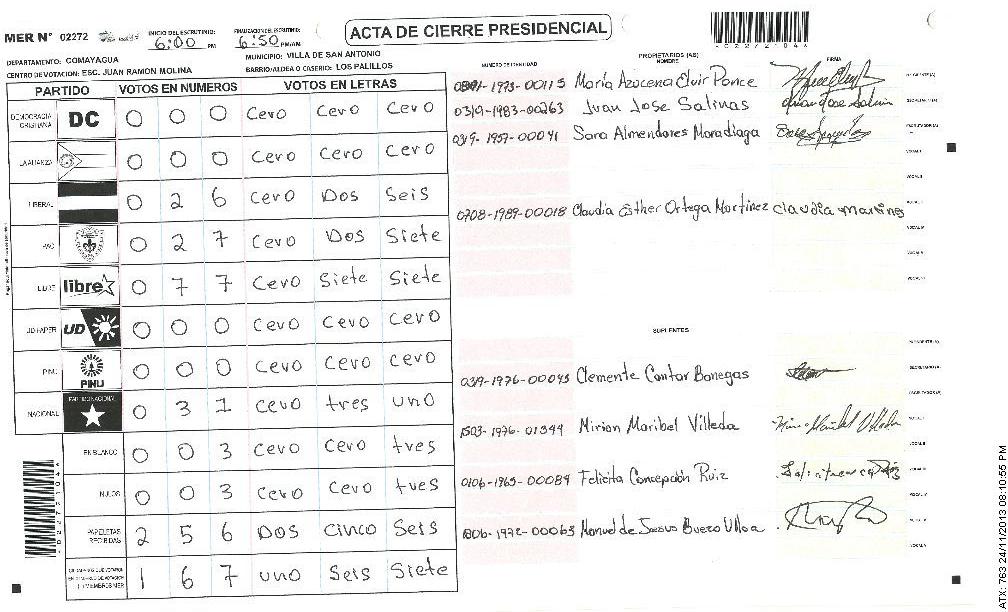 MER N° 02272
INICIO DEL ESCRUTINIO: 6:00 PM
FINALIZACION DEL ESCRUTINIO: 6:50 PM/AM
ACTA DE CIERRE PRESIDENCIAL
DEPARTAMENTO: COMAYAGUA
MUNICIPIO: VILLA DE SAN ANTONIO
CENTRO DE VOTACION: ESC. JUAN RAMON MOLINA
BARRIO/ALDEA O CASERIO: LOS PALILLOS
PARTIDO VOTOS EN NUMEROS VOTOS EN LETRAS
DEMOCRACIA CRISTIANA DC 0 0 0 Cero Cero Cero
LA ALIANZA 0 0 0 Cero Cero Cero
LIBERAL 0 2 6 Cero Dos Seis
PAC 0 2 7 Cero Dos Siete
LIBRE libre 0 7 7 Cero Siete Siete
UD FAPER UD 0 0 0 Cero Cero Cero
PINU PINU 0 0 0 Cero Cero Cero
NACIONAL PARTIDO NACIONAL 0 3 1 Cero tres uno
EN BLANCO 0 0 3 Cero Cero tres
NULOS 0 0 3 Cero Cero tres
PAPELETAS RECIBIDAS 2 5 6 Dos Cinco Seis
1 6 7 uno Seis Siete
NUMERO DE IDENTIDAD PROPIETARIOS (AS) NOMBRE FIRMA
1973-00115 María Azucena Elvir Ponce
0319-1983-00263 Juan Jose Salinas Juan Jose Salin
0319-1957-00091 Sara Almendares Maradiaga
0708-1989-00018 Claudia Esther Ortega Martinez Claudia Martinez
SUPLENTES
0319-1976-00093 Clemente Cantor Banegas
1503-1976-01399 Mirian Maribel Villeda
0106-1965-00089 Felicita Concepción Ruiz
1806-1972-00063 Manuel de Jesus Buezo Ulloa
02272104
ATX: 763 24/11/2013 08:10:55 PM